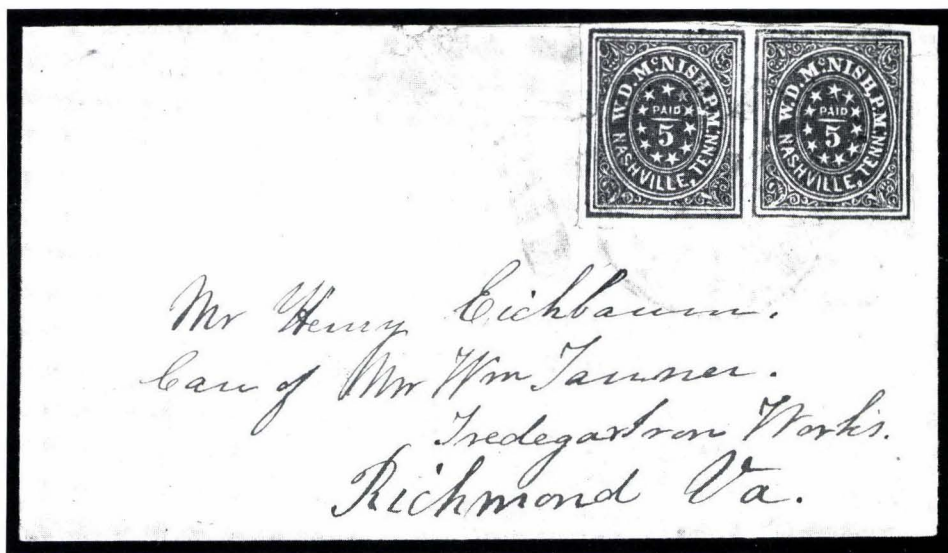 W.D. McNISH, P.M.
PAID
5
NASHVILLE, TENN.
W.D. McNISH, P.M.
PAID
5
NASHVILLE, TENN.
Mr Henry Eichbaum.
Care of Mr Wm Tanner.
Tredegar Iron Works.
Richmond Va.